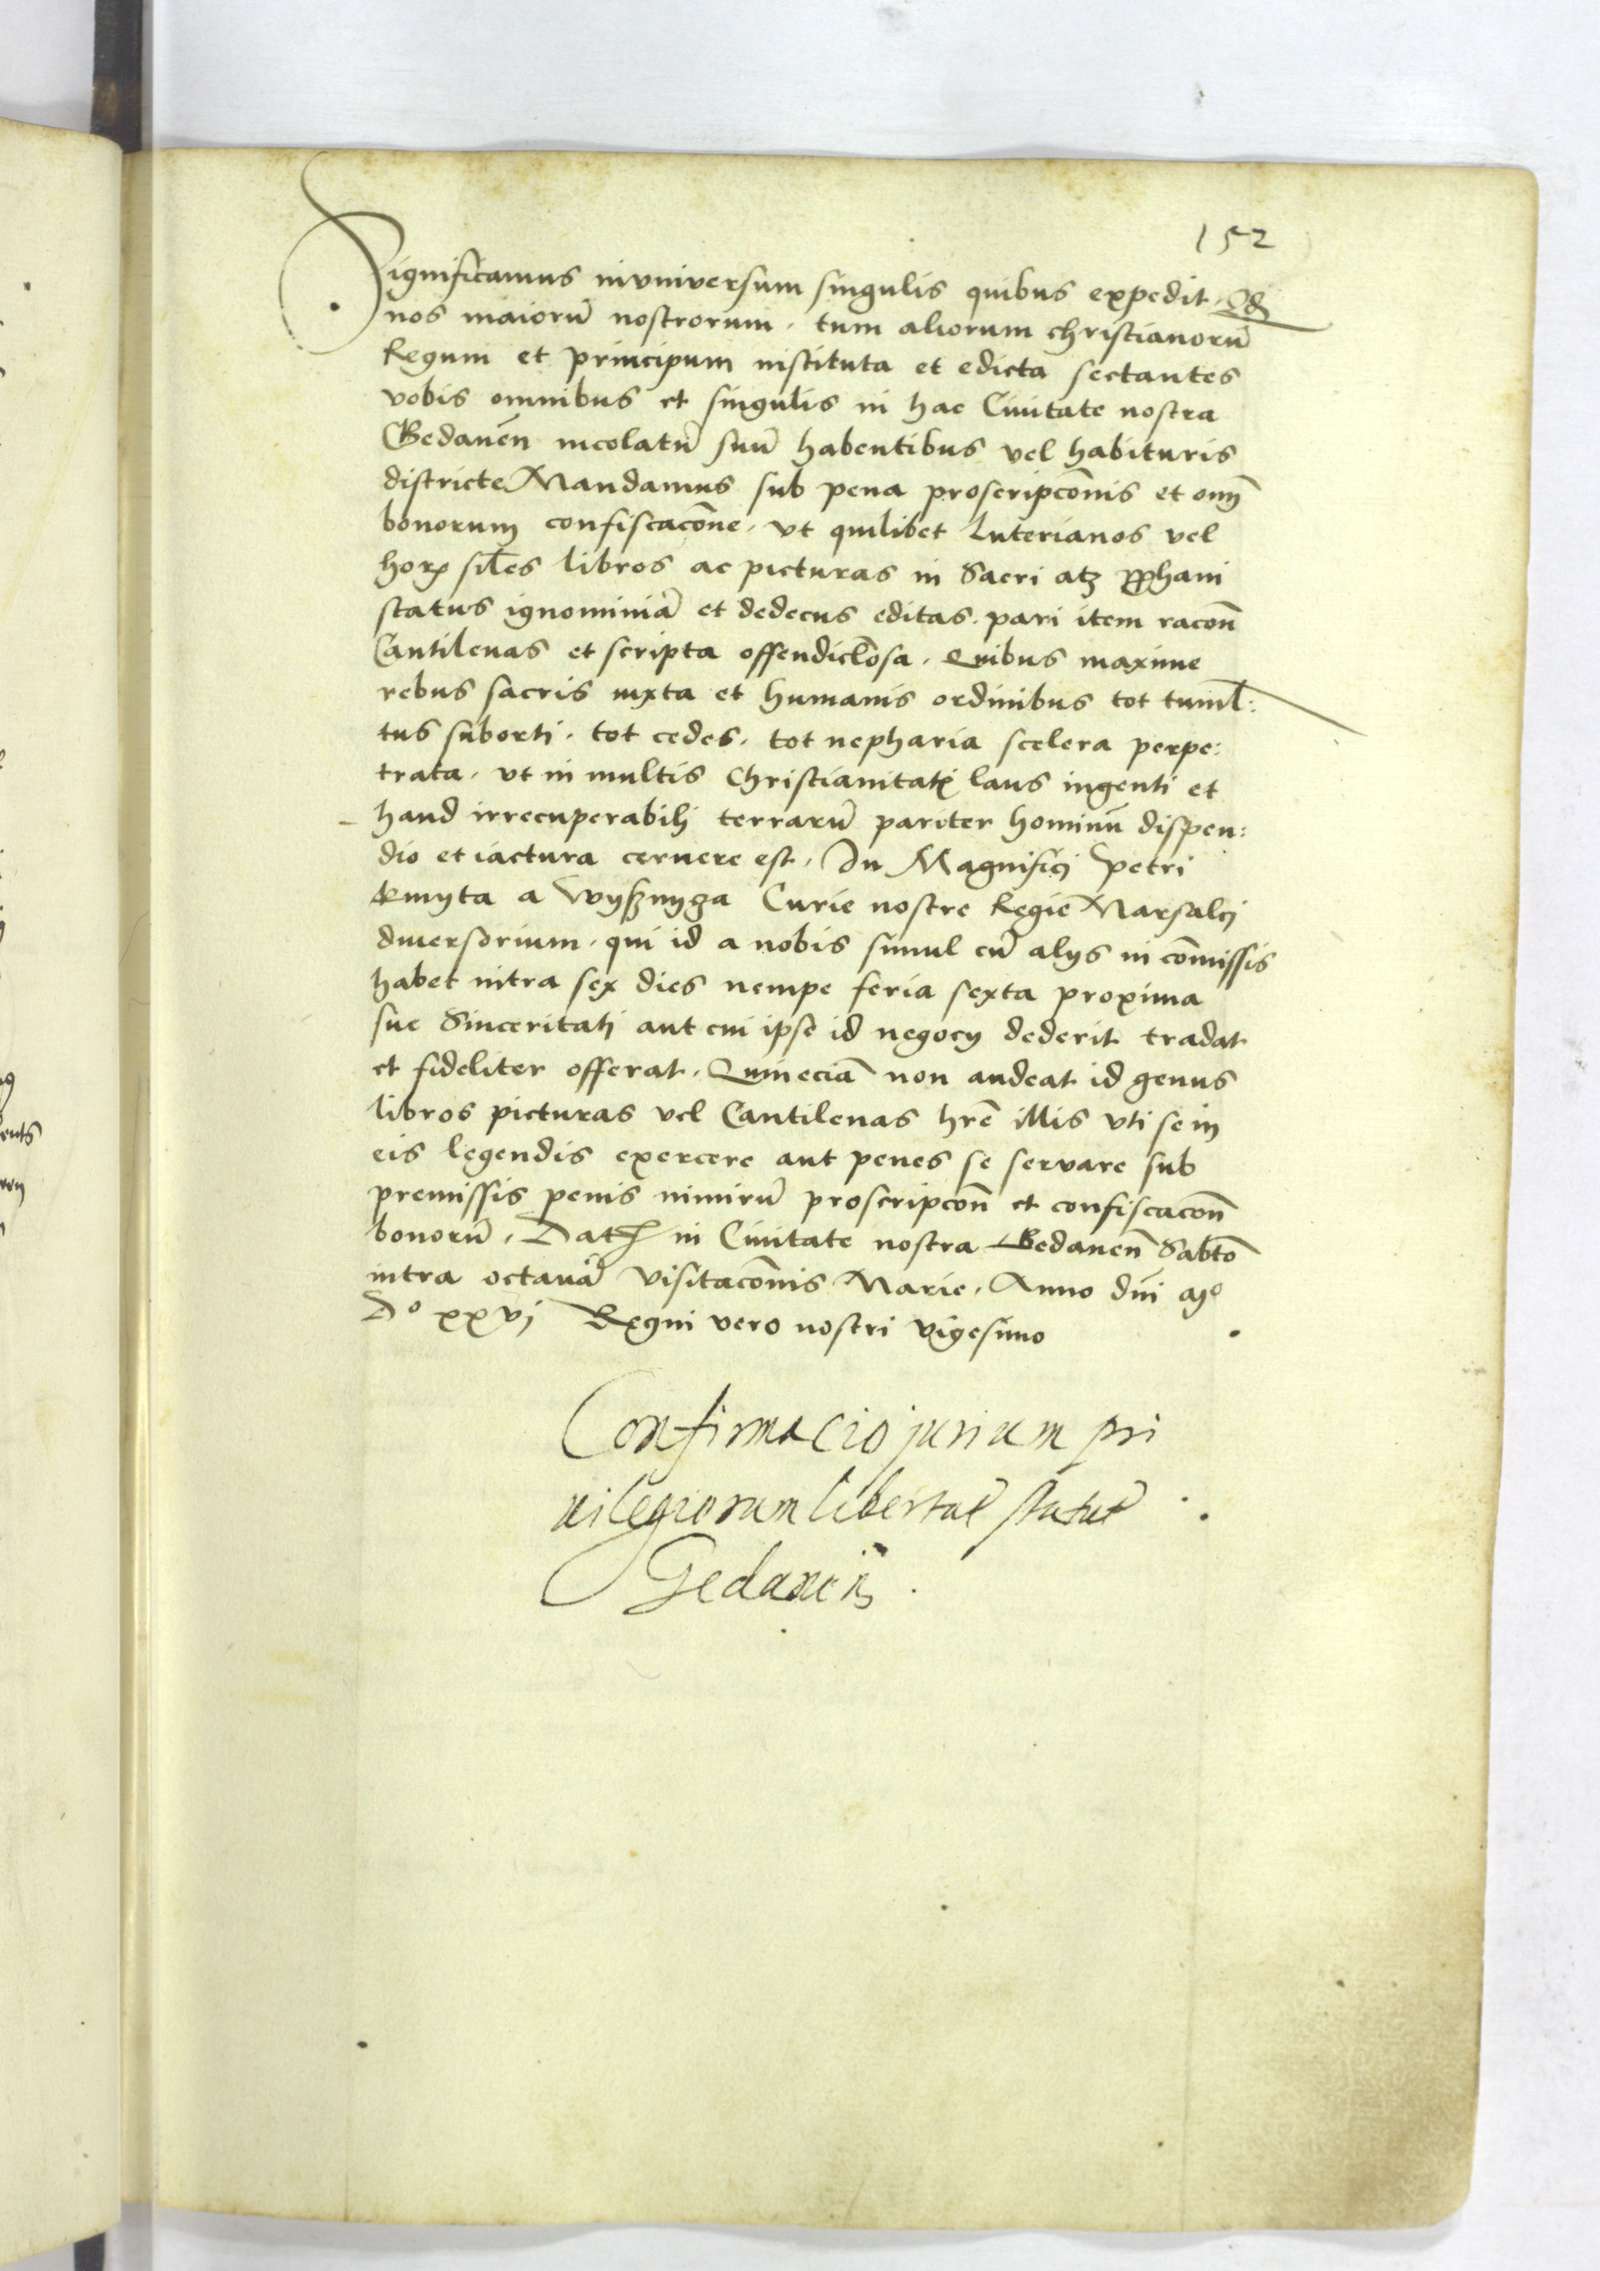 152
Significamus in vniversum singulis quibus expedit. Qd
nos maiorū nostrorum. tum aliorum christianorū
Regum et principum instituta et edicta sectantes
vobis omnibus et singulis in hac Ciuitate nostra
Gedanen̄ incolatū suū habentibus vel habituris
districte Mandamus sub pena proscripcōnis et om̄
bonorum confiscacōne. vt quilibet Luterianos vel
horꝝ siłes libros ac picturas in Sacri atqꝫ prophani
status ignominiā et dedecus editas. pari item racōn̄
Cantilenas et scripta offendiclosa. Quibus maxime
rebus sacris iuxta et humanis ordinibus tot tuml:
tus suborti. tot cedes. tot nepharia scelera perpe:
trata. vt in multis Christianitatꝭ laus ingenti et
haud irrecuperabili terrarū pariter hominū dispen:
dio et iactura cernere est. In Magnifici Petri
Kmyta a Wyssznyza Curie nostre Regie Marsalci
diuersorium. qui id a nobis simul cū alijs in cōmissis
habet intra sex dies nempe feria sexta proxima
sue Sinceritati aut cui ipse id negocij dederit tradat
et fideliter offerat. Quin eciā non audeat id genus
libros picturas vel Cantilenas hr̄e illis vti se in
eis legendis exercere aut penes se servare sub
premissis penis nimirū proscripcōn̄ et confiscacōn̄
bonorū. Datꝫ in Ciuitate nostra Gedanen̄ Sabto
intra octauā Visitacōnis Marie. Anno dn̄i Mº
Dº xxvj Regni vero nostri vigesimo
Confirmacio jurium pri
uilegiorum libertat̄ statut̄
Gedanen̄